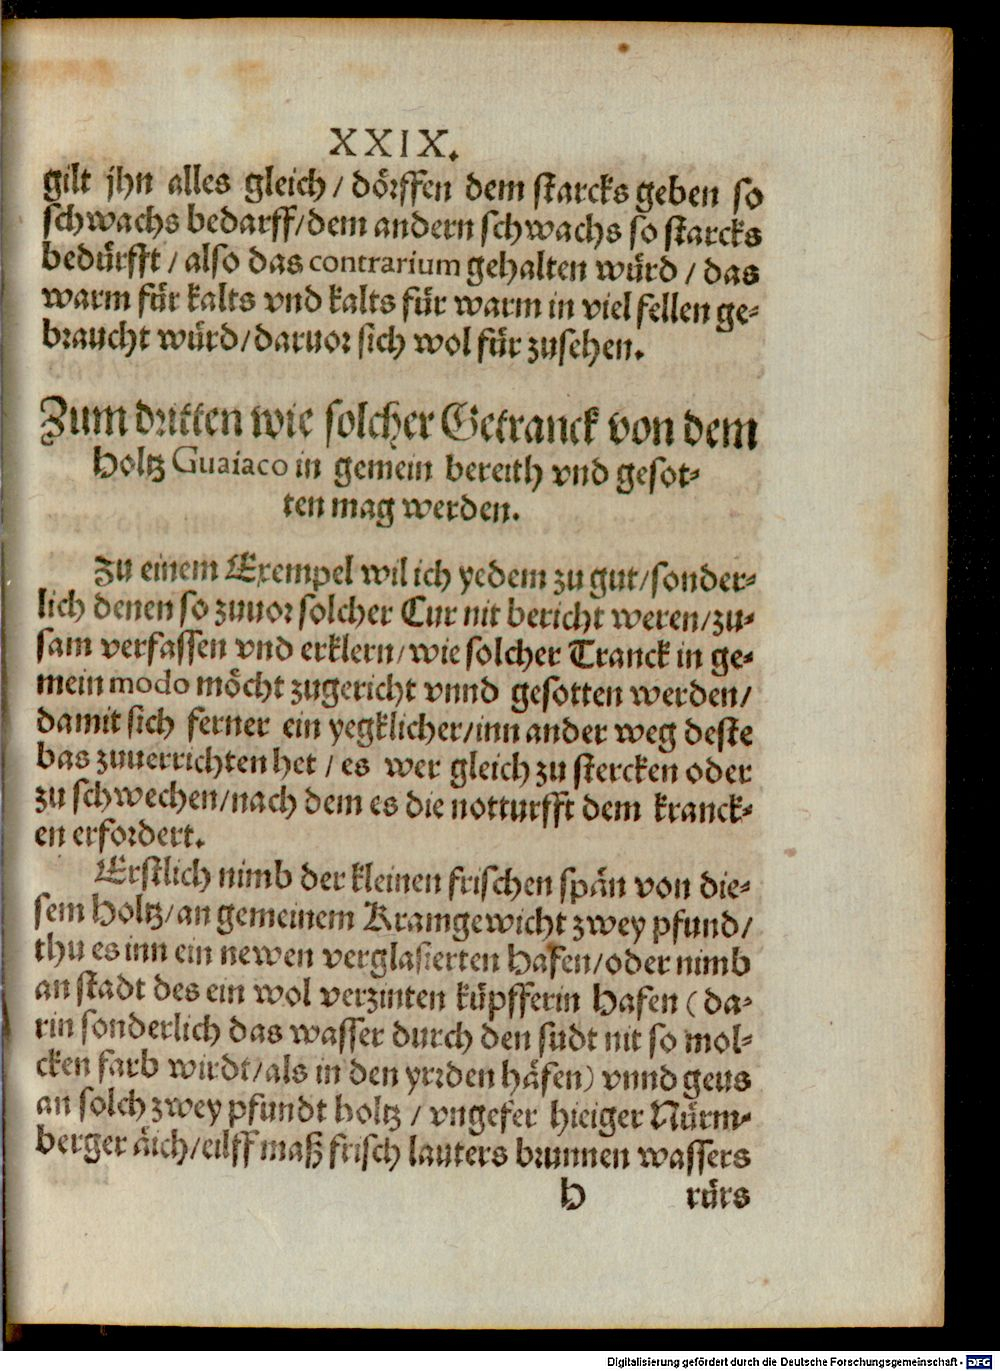 XXIX.
gilt jhn alles gleich / dörffen dem starcks geben so
schwachs bedarff/dem andern schwachs so starcks
bedürfft / also das contrarium gehalten würd / das
warm für kalts vnd kalts für warm in viel fellen ge-
braucht würd/daruor sich wol für zusehen.
Zum dritten wie solcher Getranck von dem
Holtz Guaiaco in gemein bereith vnd gesot-
ten mag werden.
Zu einem Exempel wil ich yedem zu gut/sonder-
lich denen so zuuor solcher Cur nit bericht weren/zu-
sam verfassen vnd erklern/wie solcher Tranck in ge-
mein modo möcht zugericht vnnd gesotten werden/
damit sich ferner ein yegklicher/inn ander weg deste
bas zuuerrichten het / es wer gleich zu stercken oder
zu schwechen/nach dem es die notturfft dem kranck-
en erfordert.
Erstlich nimb der kleinen frischen spän von die-
sem Holtz/an gemeinem Kramgewicht zwey pfund/
thu es inn ein newen verglasierten Hafen/oder nimb
an stadt des ein wol verzinten küpfferin Hafen (da-
rin sonderlich das wasser durch den südt nit so mol-
cken farb wirdt/als in den yrrden häfen) vnnd geus
an solch zwey pfundt holtz / vngefer hieiger Nürm-
berger äich/eilff maß frisch lauters brunnen wassers
H rürs
Digitalisierung gefördert durch die Deutsche Forschungsgemeinschaft - DFG